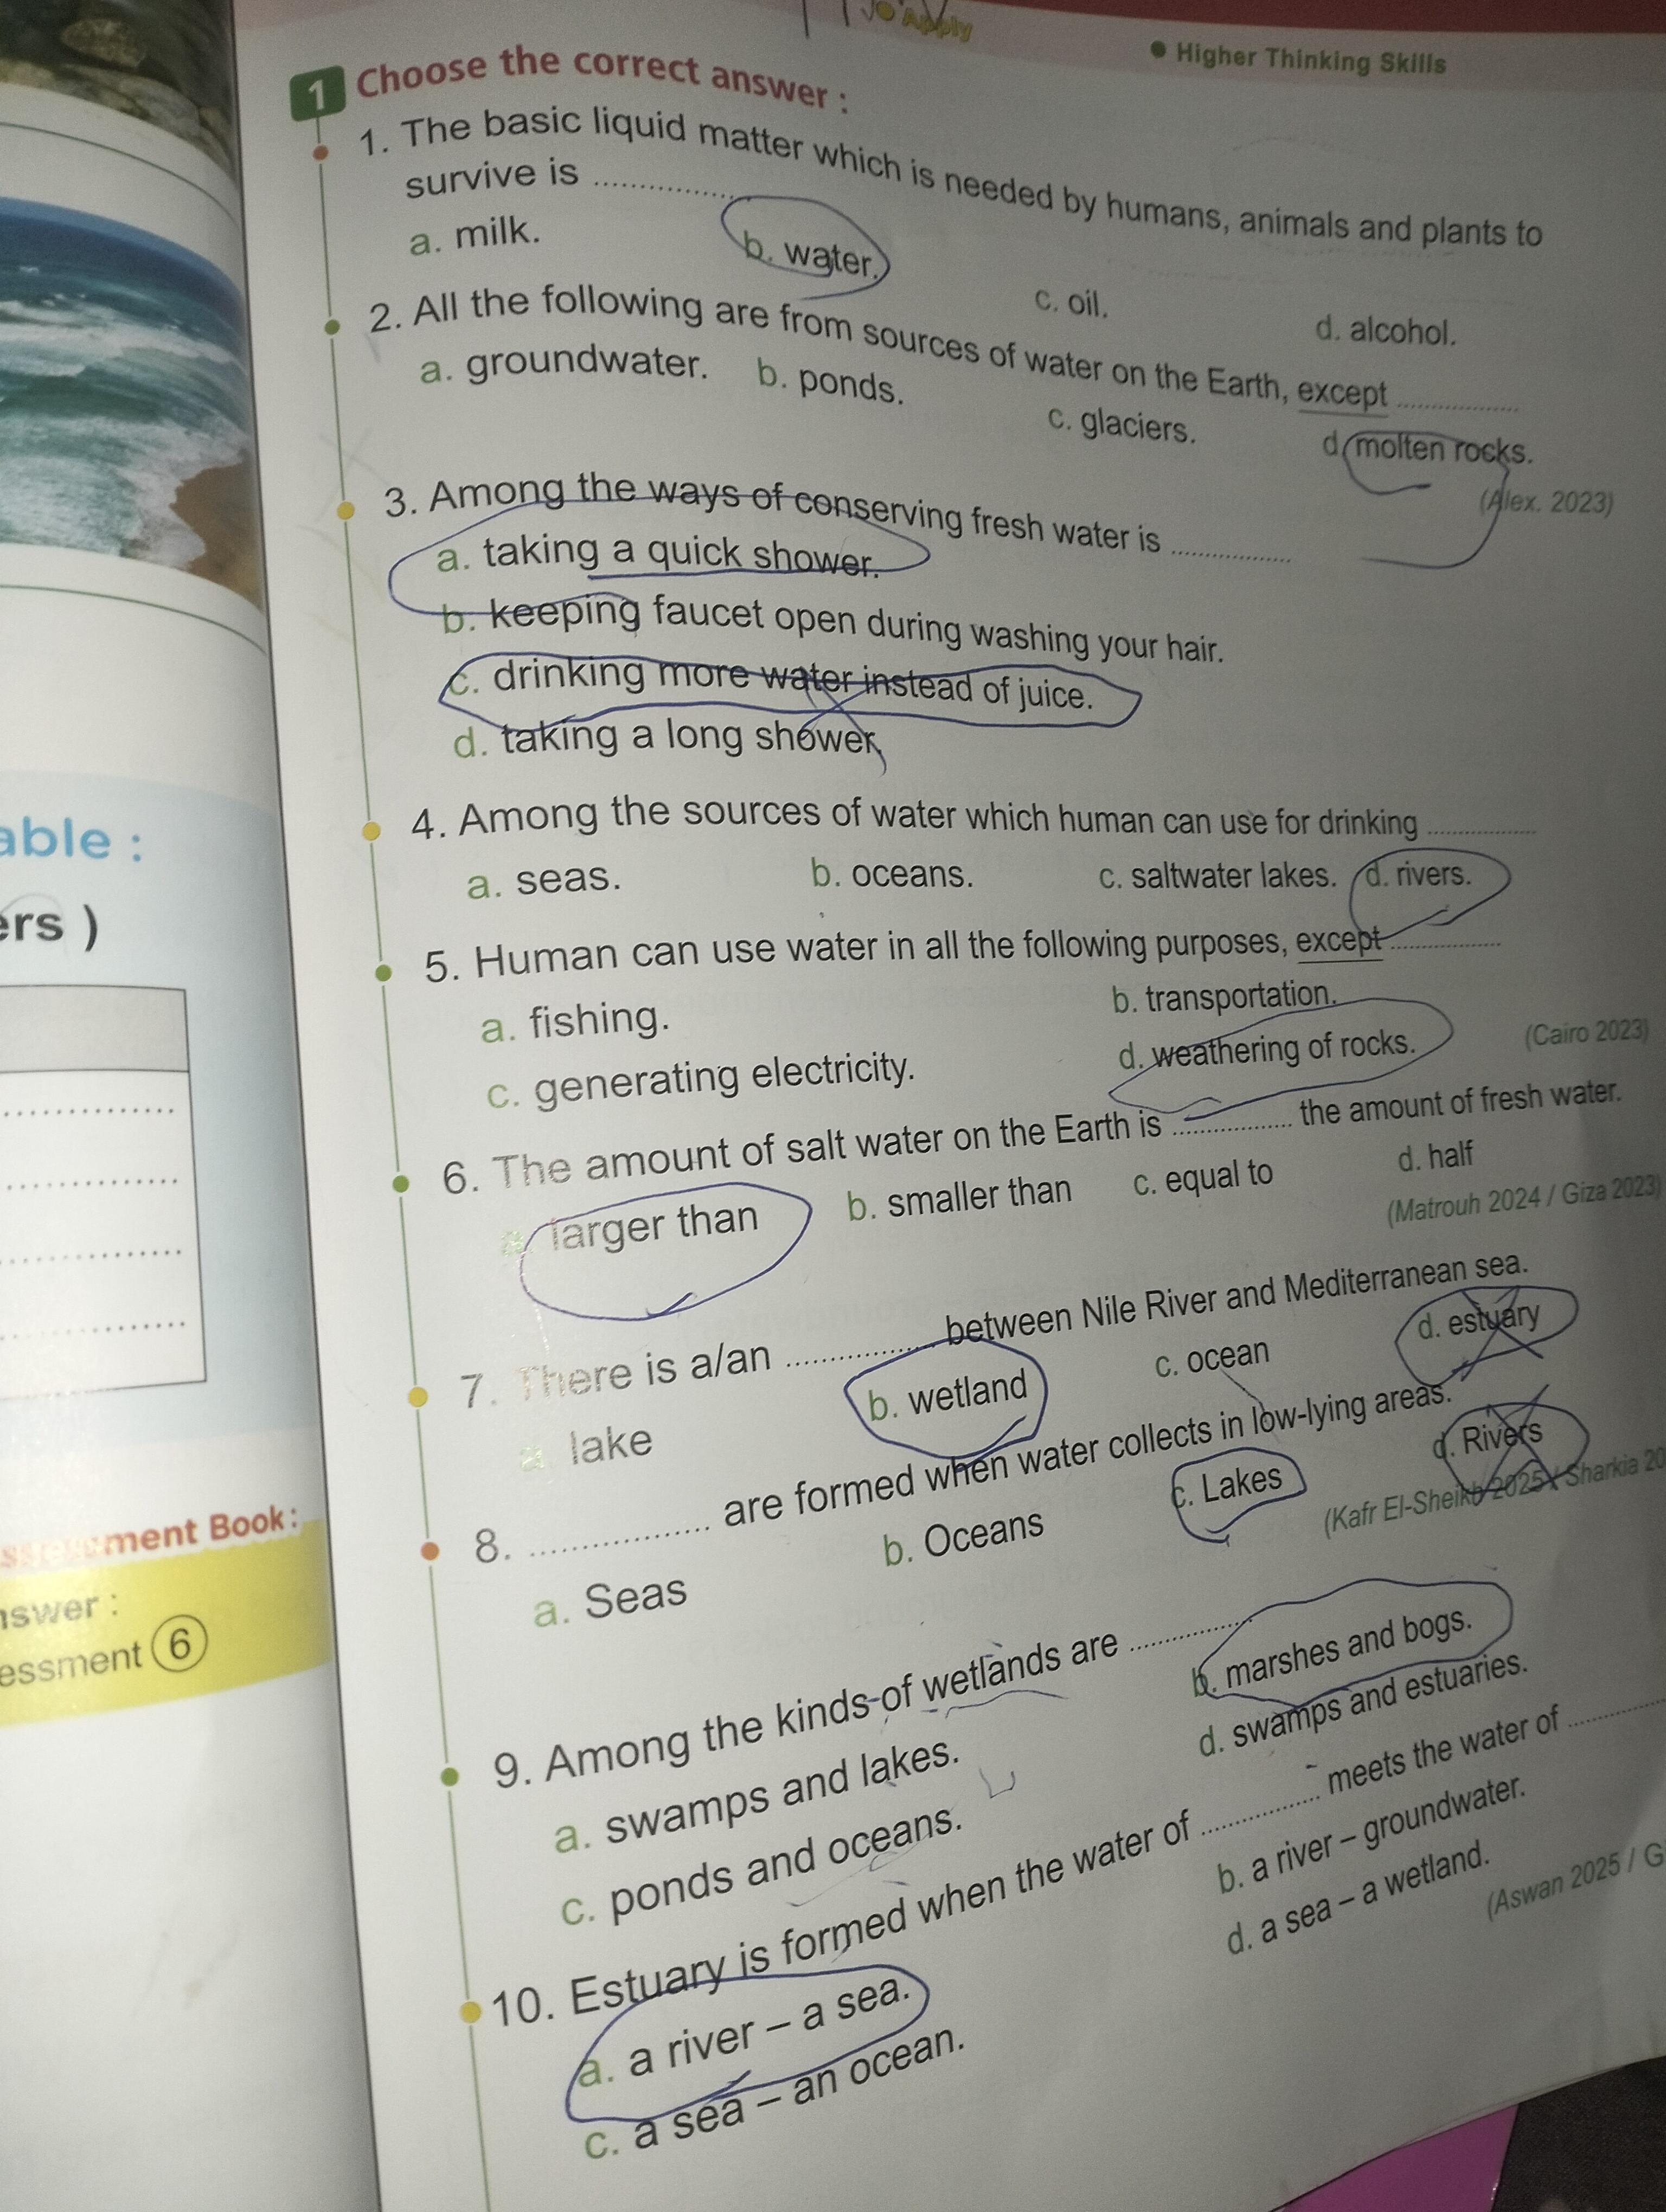 Apply
Higher Thinking Skills
1 Choose the correct answer :
1. The basic liquid matter which is needed by humans, animals and plants to
survive is
a. milk. b. water. c. oil. d. alcohol.
2. All the following are from sources of water on the Earth, except
a. groundwater. b. ponds. c. glaciers. d. molten rocks.
(Alex. 2023)
3. Among the ways of conserving fresh water is
a. taking a quick shower.
b. keeping faucet open during washing your hair.
c. drinking more water instead of juice.
d. taking a long shower.
4. Among the sources of water which human can use for drinking
a. seas. b. oceans. c. saltwater lakes. d. rivers.
5. Human can use water in all the following purposes, except
a. fishing. b. transportation.
c. generating electricity. d. weathering of rocks.
(Cairo 2023)
6. The amount of salt water on the Earth is .......... the amount of fresh water.
a. larger than b. smaller than c. equal to d. half
(Matrouh 2024 / Giza 2023)
7. There is a/an .......... between Nile River and Mediterranean sea.
a. lake b. wetland c. ocean d. estuary
8. .......... are formed when water collects in low-lying areas.
a. Seas b. Oceans c. Lakes d. Rivers
(Kafr El-Sheikh 2025 / Sharkia 20
9. Among the kinds of wetlands are
a. swamps and lakes. b. marshes and bogs.
c. ponds and oceans. d. swamps and estuaries.
10. Estuary is formed when the water of .......... meets the water of
a. a river – a sea. b. a river – groundwater.
c. a sea – an ocean. d. a sea – a wetland.
(Aswan 2025 / G
able :
ers )
ment Book:
nswer :
essment 6